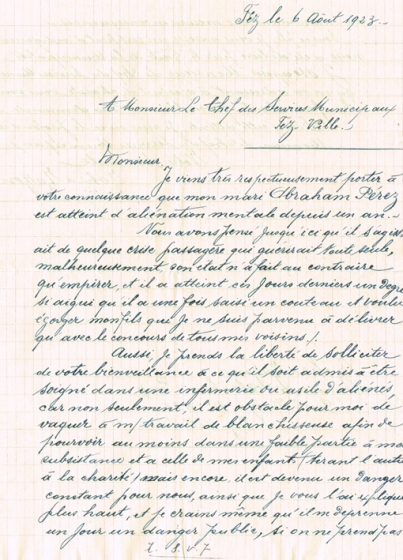 Féz le 6 Août 1928.
A Monsieur Le Chef des Services Municipaux
Féz-Ville.
Monsieur,
Je viens très respectueusement porter à
votre connaissance que mon mari Abraham Pérez
est atteint d'aliénation mentale depuis un an.
Nous avons pensé jusqu'ici qu'il s'agiss
ait de quelque crise passagère qui guérirait toute seule,
malheureusement son état n'a fait au contraire
qu'empirer, et il a atteint ces jours derniers un degré
si aigu qu'il a une fois saisi un couteau et voulu
égorger mon fils que je ne suis parvenu à délivrer
qu'avec le concours de tous mes voisins./.
Aussi, je prends la liberté de solliciter
de votre bienveillance à ce qu'il soit admis à être
soigné dans une infirmerie ou asile d'aliénés
car non seulement, il est obstacle pour moi de
vaquer à m/ travail de blanchisseuse afin de
pourvoir au moins dans une faible partie à ma
subsistance et a celle de mes enfant. (tirant l'autre
à la charité) mais encore, il est devenu un danger
constant pour nous, ainsi que je vous l'ai expliqué
plus haut, et je crains même qu'il ne devienne
un jour un danger public, si on ne prend pas
T. S. V. P